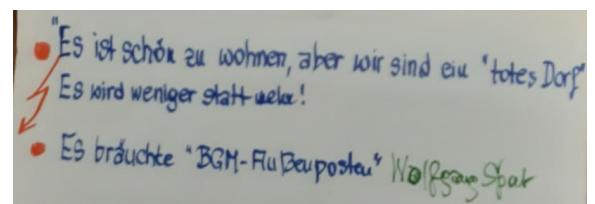 "Es ist schön zu wohnen, aber wir sind ein "totes Dorf"
Es wird weniger statt mehr!
Es bräuchte "BGM-Außenposten" Wolfgang Spat